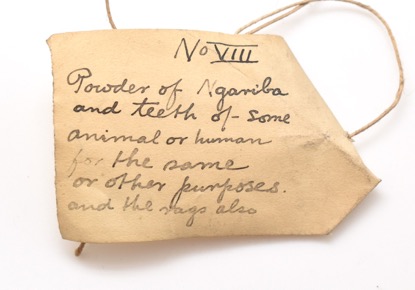 No VIII
Powder of Ngariba
and teeth of - some
animal or human
for the same
or other purposes.
and the rags also